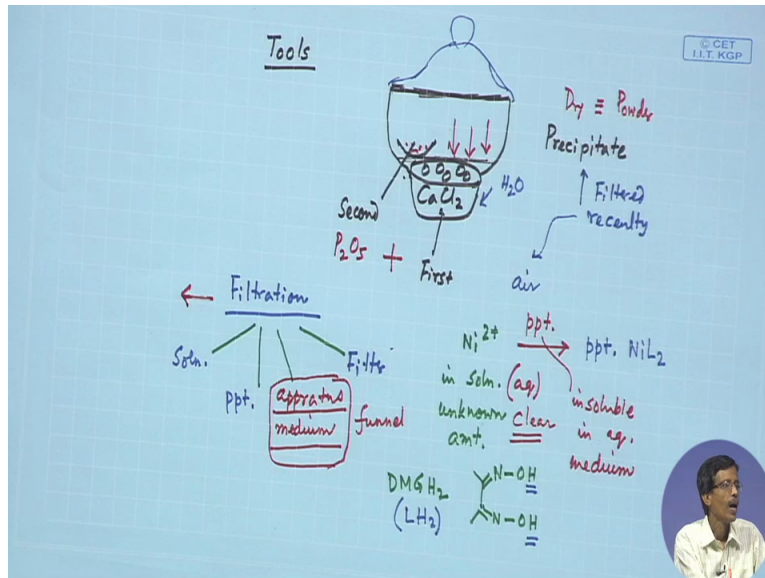 Tools
© CET
I.I.T. KGP
Dry ≡ Powder
Precipitate
Filtered
recenlty
air
H2O
CaCl2
Second
First
P2O5 +
Filtration
Soln.
ppt.
appratus
medium
funnel
Filter
Ni2+
ppt.
ppt. NiL2
in soln. (aq)
unknown Clear
amt.
insoluble
in aq.
medium
DMGH2
(LH2)
N-OH
N-OH